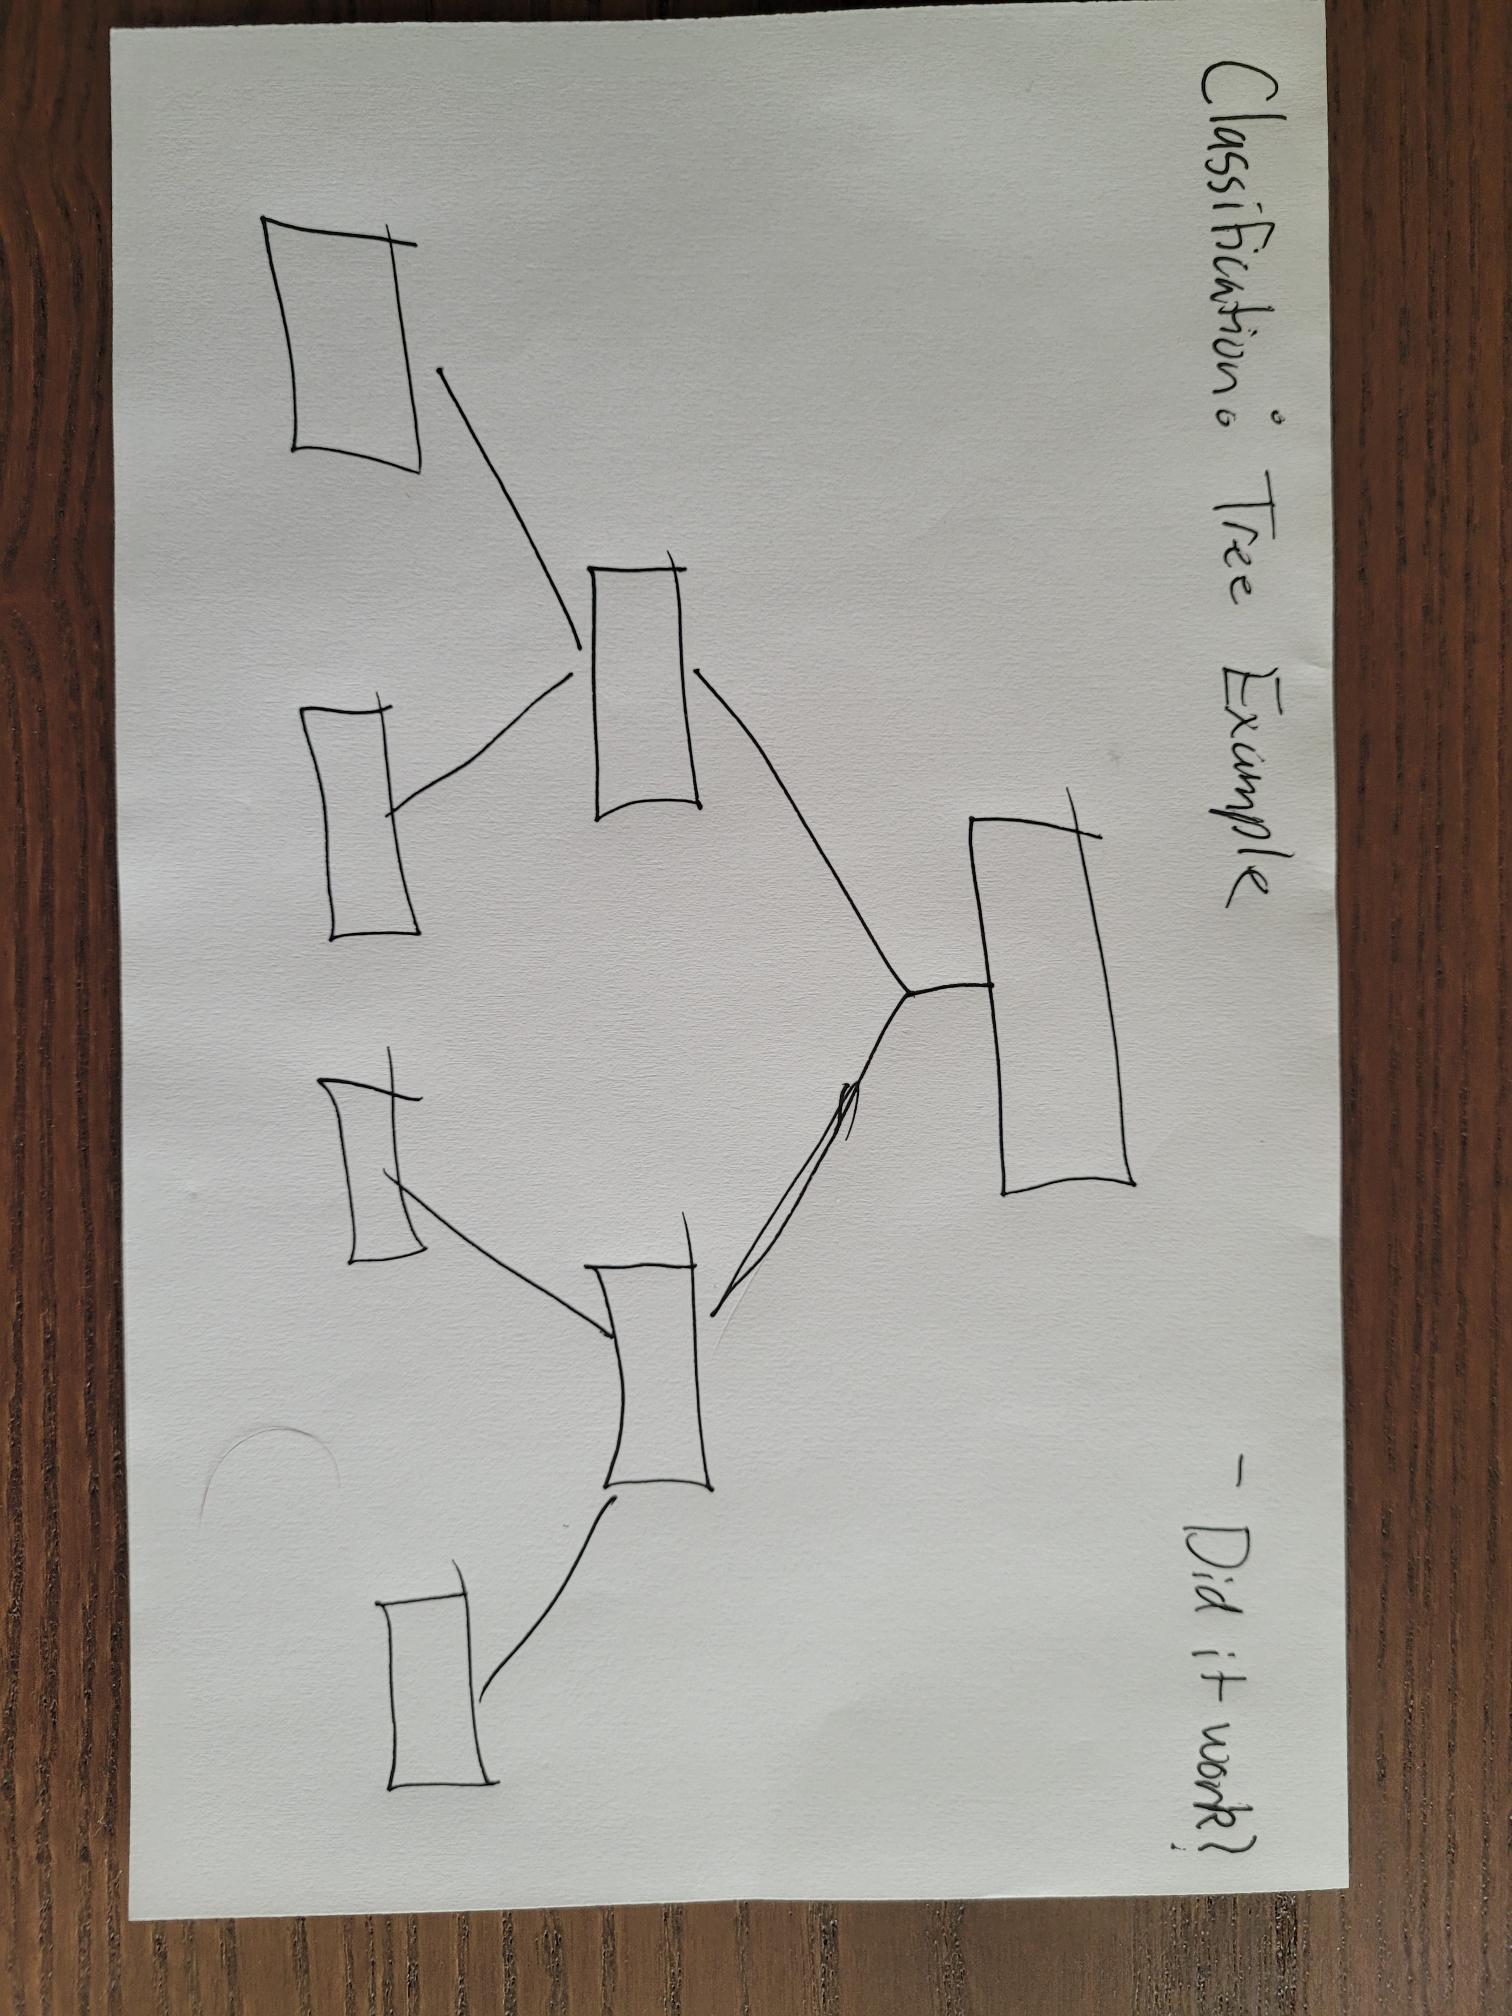 Classification: Tree Example - Did it work?